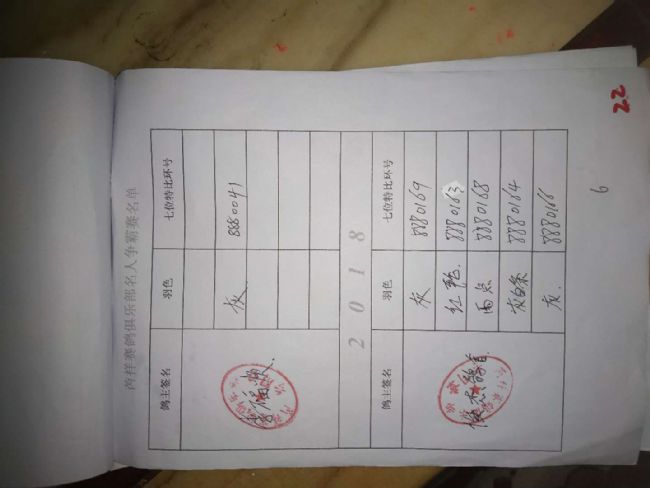 赛鸽俱乐部名人争霸赛名单
鸽主签名 羽色 七位特比环号
灰 8880041
2018
鸽主签名 羽色 七位特比环号
灰 8880169
红轮. 8880163
雨点 8880168
灰白条 8880164
灰. 8880166
6
22